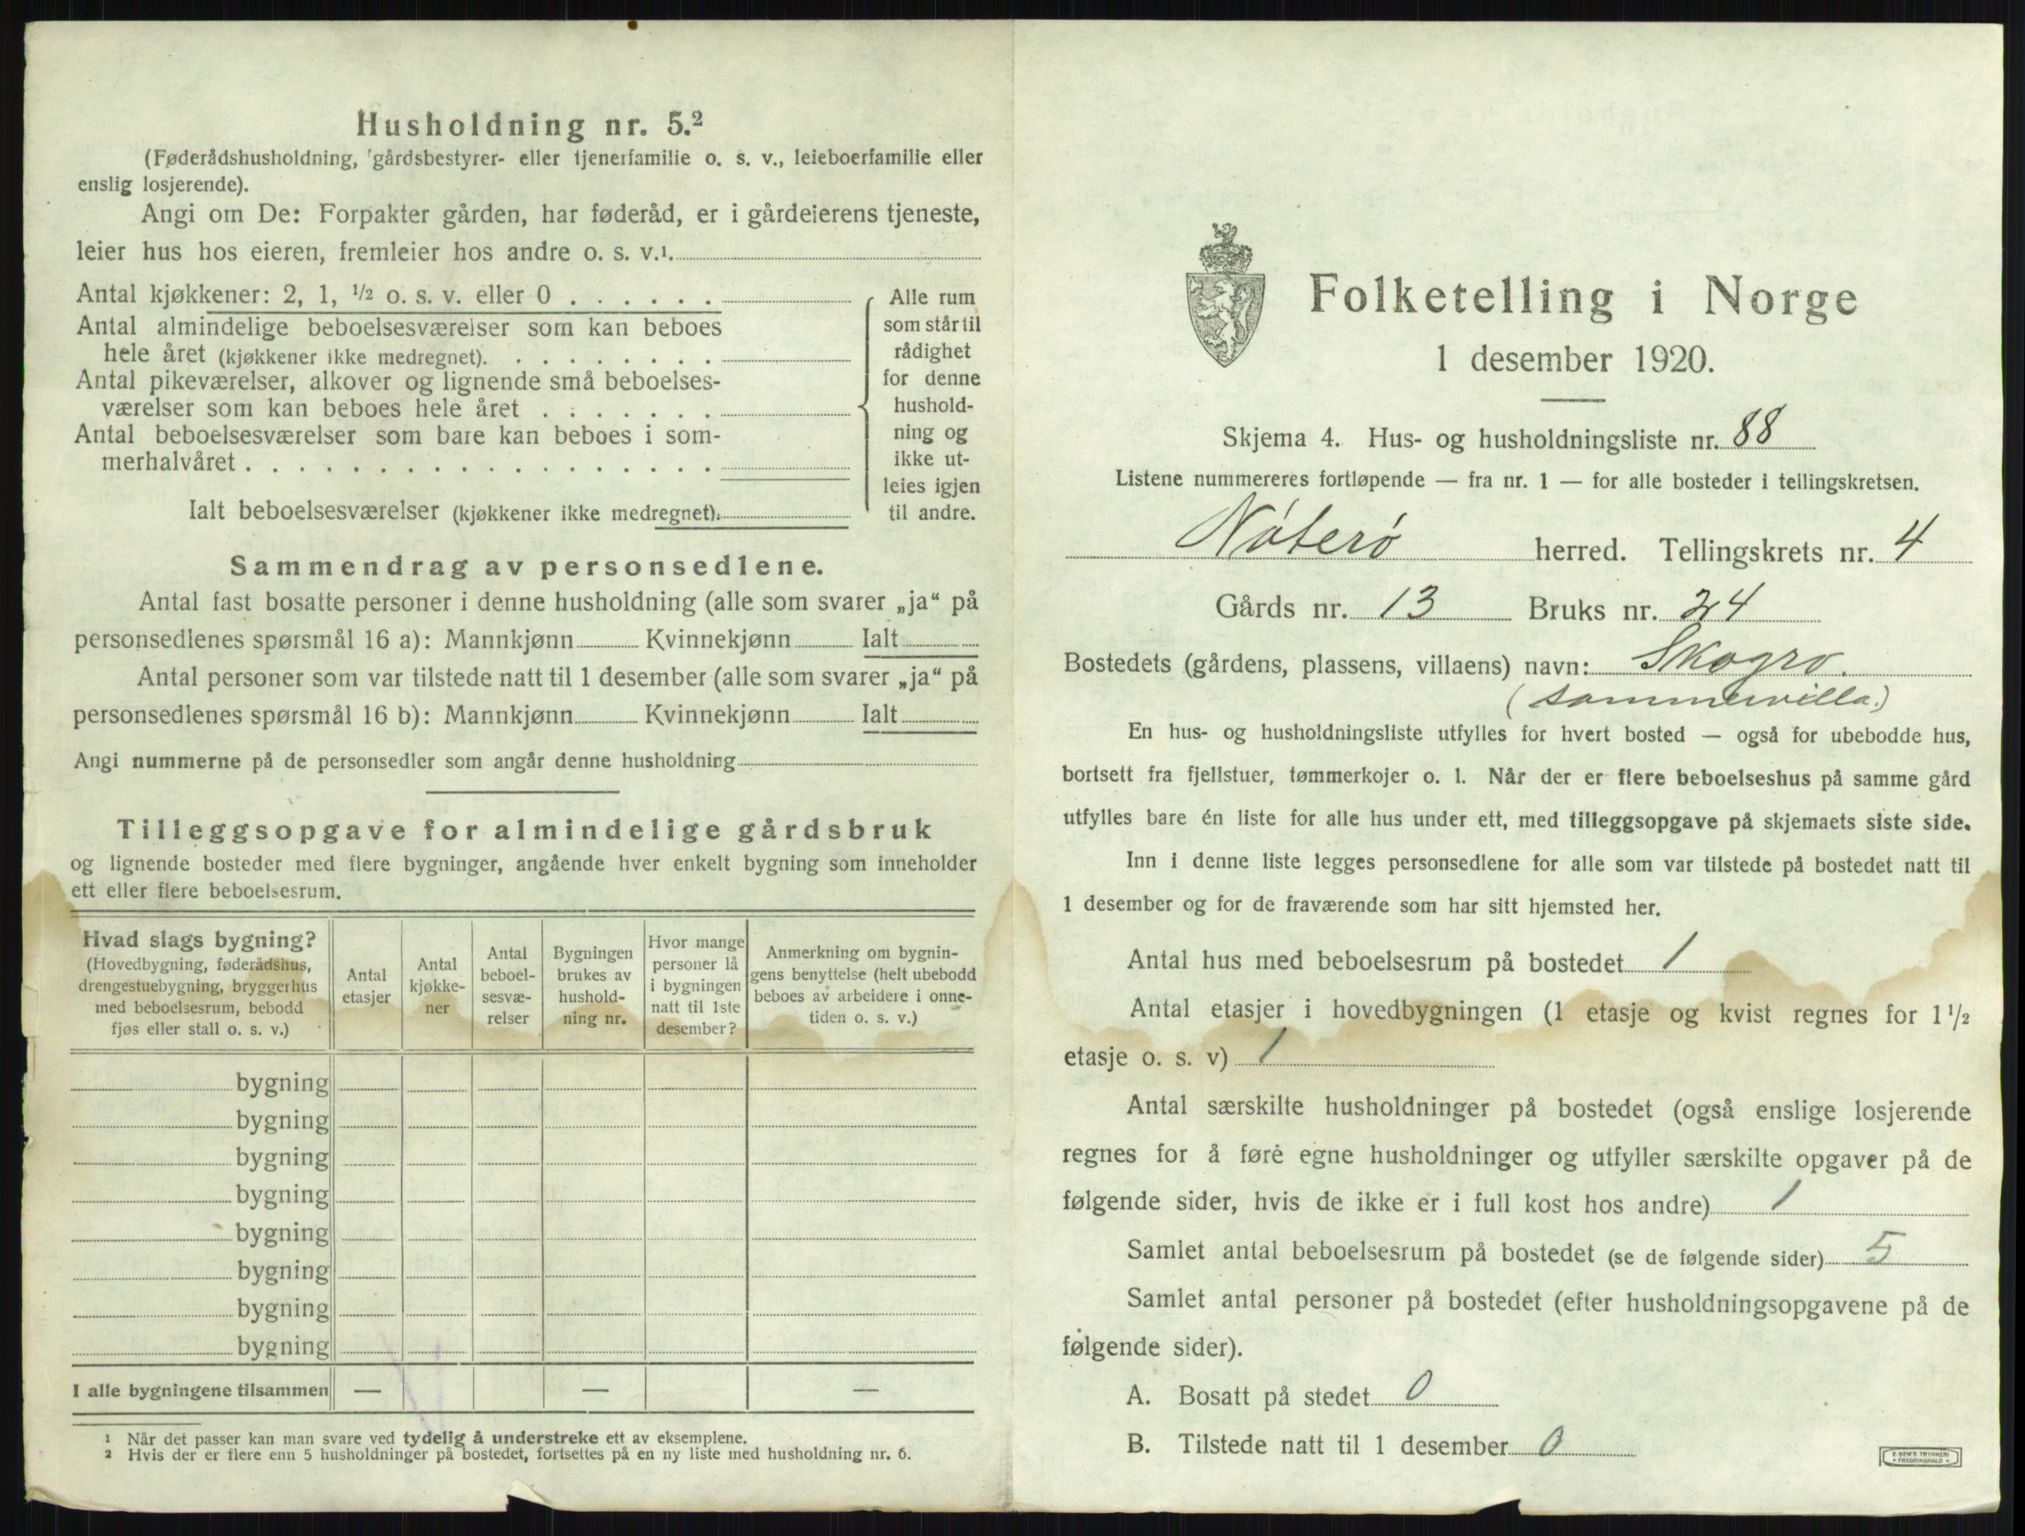 Husholdning nr. 5.²
(Føderådshusholdning, gårdsbestyrer- eller tjenerfamilie o. s. v., leieboerfamilie eller
enslig losjerende).
Angi om De: Forpakter gården, har føderåd, er i gårdeierens tjeneste,
leier hus hos eieren, fremleier hos andre o. s. v.¹.
Antal kjøkkener: 2, 1, ½ o. s. v. eller 0 . . . . . .
Antal almindelige beboelsesværelser som kan beboes
hele året (kjøkkener ikke medregnet). . . . . . . . .
Antal pikeværelser, alkover og lignende små beboelses-
værelser som kan beboes hele året . . . . . . .
Antal beboelsesværelser som bare kan beboes i som-
merhalvåret . . . . . . . . . . . . . . . . .
Ialt beboelsesværelser (kjøkkener ikke medregnet).
Alle rum
som står til
rådighet
for denne
hushold-
ning og
ikke ut-
leies igjen
til andre.
Sammendrag av personsedlene.
Antal fast bosatte personer i denne husholdning (alle som svarer „ja“ på
personsedlenes spørsmål 16 a): Mannkjønn Kvinnekjønn Ialt
Antal personer som var tilstede natt til 1 desember (alle som svarer „ja“ på
personsedlenes spørsmål 16 b): Mannkjønn Kvinnekjønn Ialt
Angi nummerne på de personsedler som angår denne husholdning
Tilleggsopgave for almindelige gårdsbruk
og lignende bosteder med flere bygninger, angående hver enkelt bygning som inneholder
ett eller flere beboelsesrum.
Hvad slags bygning?
(Hovedbygning, føderådshus,
drengestuebygning, bryggerhus
med beboelsesrum, bebodd
fjøs eller stall o. s. v.)
Antal
etasjer
Antal
kjøkke-
ner
Antal
beboel-
sesvæ-
relser
Bygningen
brukes av
hushold-
ning nr.
Hvor mange
personer lå
i bygningen
natt til 1ste
desember?
Anmerkning om bygnin-
gens benyttelse (helt ubebodd
beboes av arbeidere i onne-
tiden o. s. v.)
bygning
bygning
bygning
bygning
bygning
bygning
bygning
bygning
I alle bygningene tilsammen — — —
¹ Når det passer kan man svare ved tydelig å understreke ett av eksemplene.
² Hvis der er flere enn 5 husholdninger på bostedet, fortsettes på en ny liste med husholdning nr. 6.
Folketelling i Norge
1 desember 1920.
Skjema 4. Hus- og husholdningsliste nr. 88
Listene nummereres fortløpende — fra nr. 1 — for alle bosteder i tellingskretsen.
Nøterø herred. Tellingskrets nr. 4
Gårds nr. 13 Bruks nr. 24
Bostedets (gårdens, plassens, villaens) navn: Skogro.
(sommervilla.)
En hus- og husholdningsliste utfylles for hvert bosted — også for ubebodde hus,
bortsett fra fjellstuer, tømmerkojer o. l. Når der er flere beboelseshus på samme gård
utfylles bare én liste for alle hus under ett, med tilleggsopgave på skjemaets siste side.
Inn i denne liste legges personsedlene for alle som var tilstede på bostedet natt til
1 desember og for de fraværende som har sitt hjemsted her.
Antal hus med beboelsesrum på bostedet 1
Antal etasjer i hovedbygningen (1 etasje og kvist regnes for 1½
etasje o. s. v) 1
Antal særskilte husholdninger på bostedet (også enslige losjerende
regnes for å føre egne husholdninger og utfyller særskilte opgaver på de
følgende sider, hvis de ikke er i full kost hos andre) 1
Samlet antal beboelsesrum på bostedet (se de følgende sider) 5
Samlet antal personer på bostedet (efter husholdningsopgavene på de
følgende sider).
A. Bosatt på stedet 0
B. Tilstede natt til 1 desember 0
E. SEM'S TRYKKERI
FREDRIKSHALD